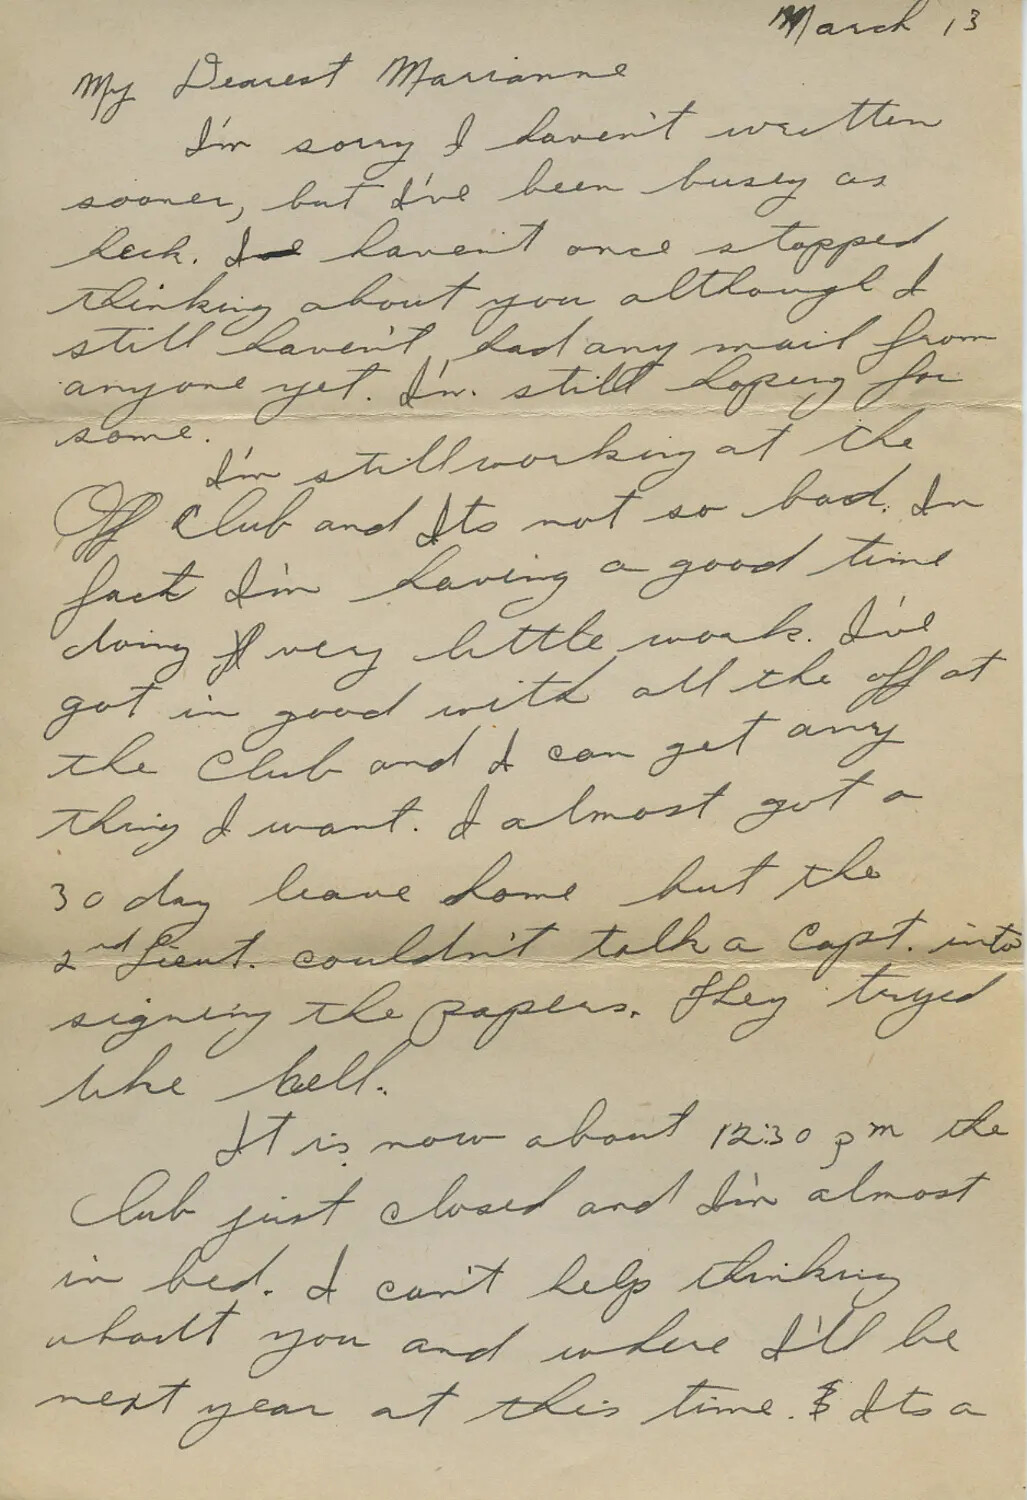 March 13
My Dearest Marianne
I'm sorry I haven't written
sooner, but I've been busey as
heck. I haven't once stopped
thinking about you although I
still haven't had any mail from
anyone yet. I'm still hopeing for
some.
I'm still working at the
Off Club and Its not so bad. In
fact I'm having a good time
doing very little work. I've
got in good with all the off at
the Club and I can get any
thing I want. I almost got a
30 day leave home but the
2nd Lieut. couldn't talk a Capt. into
signing the papers. They tryed
like hell.
It is now about 12:30 pm the
Club just closed and I'm almost
in bed. I can't help thinking
about you and where I'll be
next year at this time. Its a